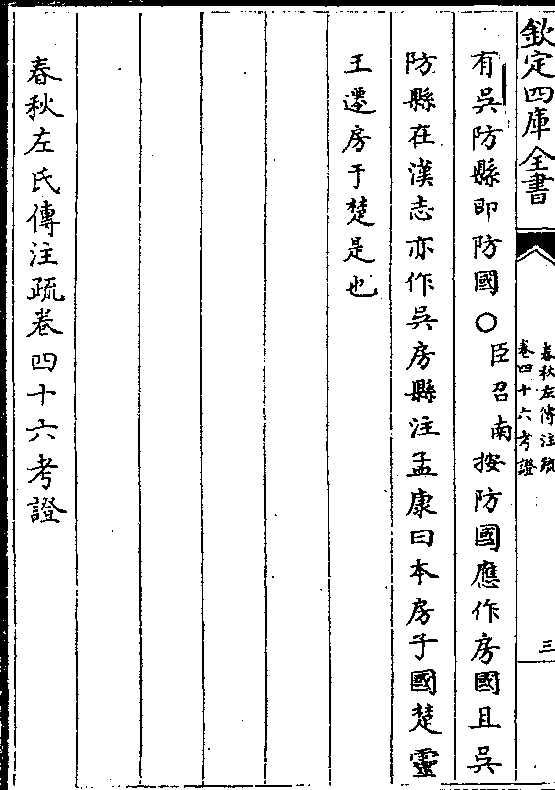 欽定四庫全書
春秋左傳注疏
卷四十六考證
三
有吳防縣即防國○臣召南按防國應作房國且吳
防縣在漢志亦作吳房縣注孟康曰本房子國楚靈
王遷房于楚是也
春秋左氏傳注疏卷四十六考證